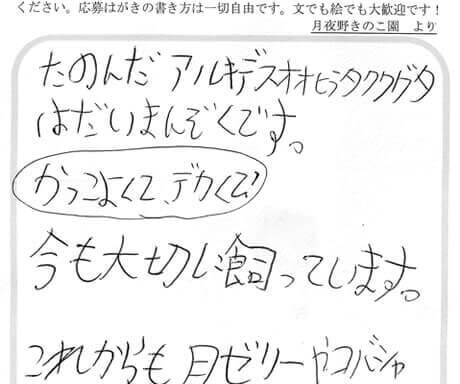 ください。応募はがきの書き方は一切自由です。文でも絵でも大歓迎です!
月夜野きのこ園 より
たのんだ アルキデスオオヒラタククグタ
はだいまんぞくです。
かっこよくて、デカくて!
今も大切に飼っています。
これからも 月ゼリーやコバシャ